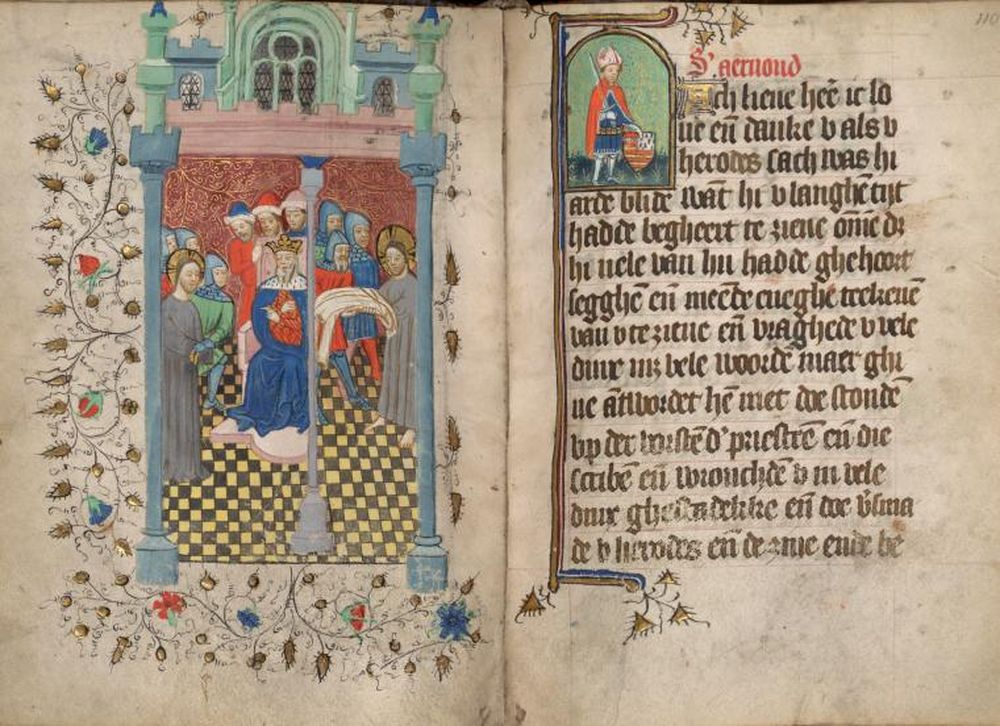 110
S' aernoud
Ach lieue hēe ic lo
ue eñ danke v als v
herodes sach was hi
arde blide wāt hi v langhē tijt
hadde begheert te ziene om̄e dz
hi uele van hu hadde ghehoort
segghē eñ mēēde eueghe teekenē
van v te ziene eñ vraghede v vele
dinc mz vele woordē maer ghi
ne ātwordet hē niet doe stondē
vp der vorstē d' priestrē eñ die
scribē eñ wrouchdē v in vele
dinc eñ doe v'sma
de v herodes eñ de zine ende be